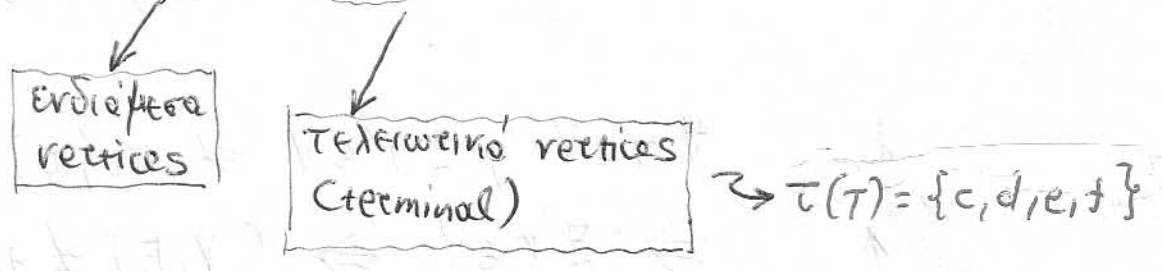 ενδιάμεσα
vertices
τελειωτινά vertices
(terminal)
τ(T) = {c, d, e, f}